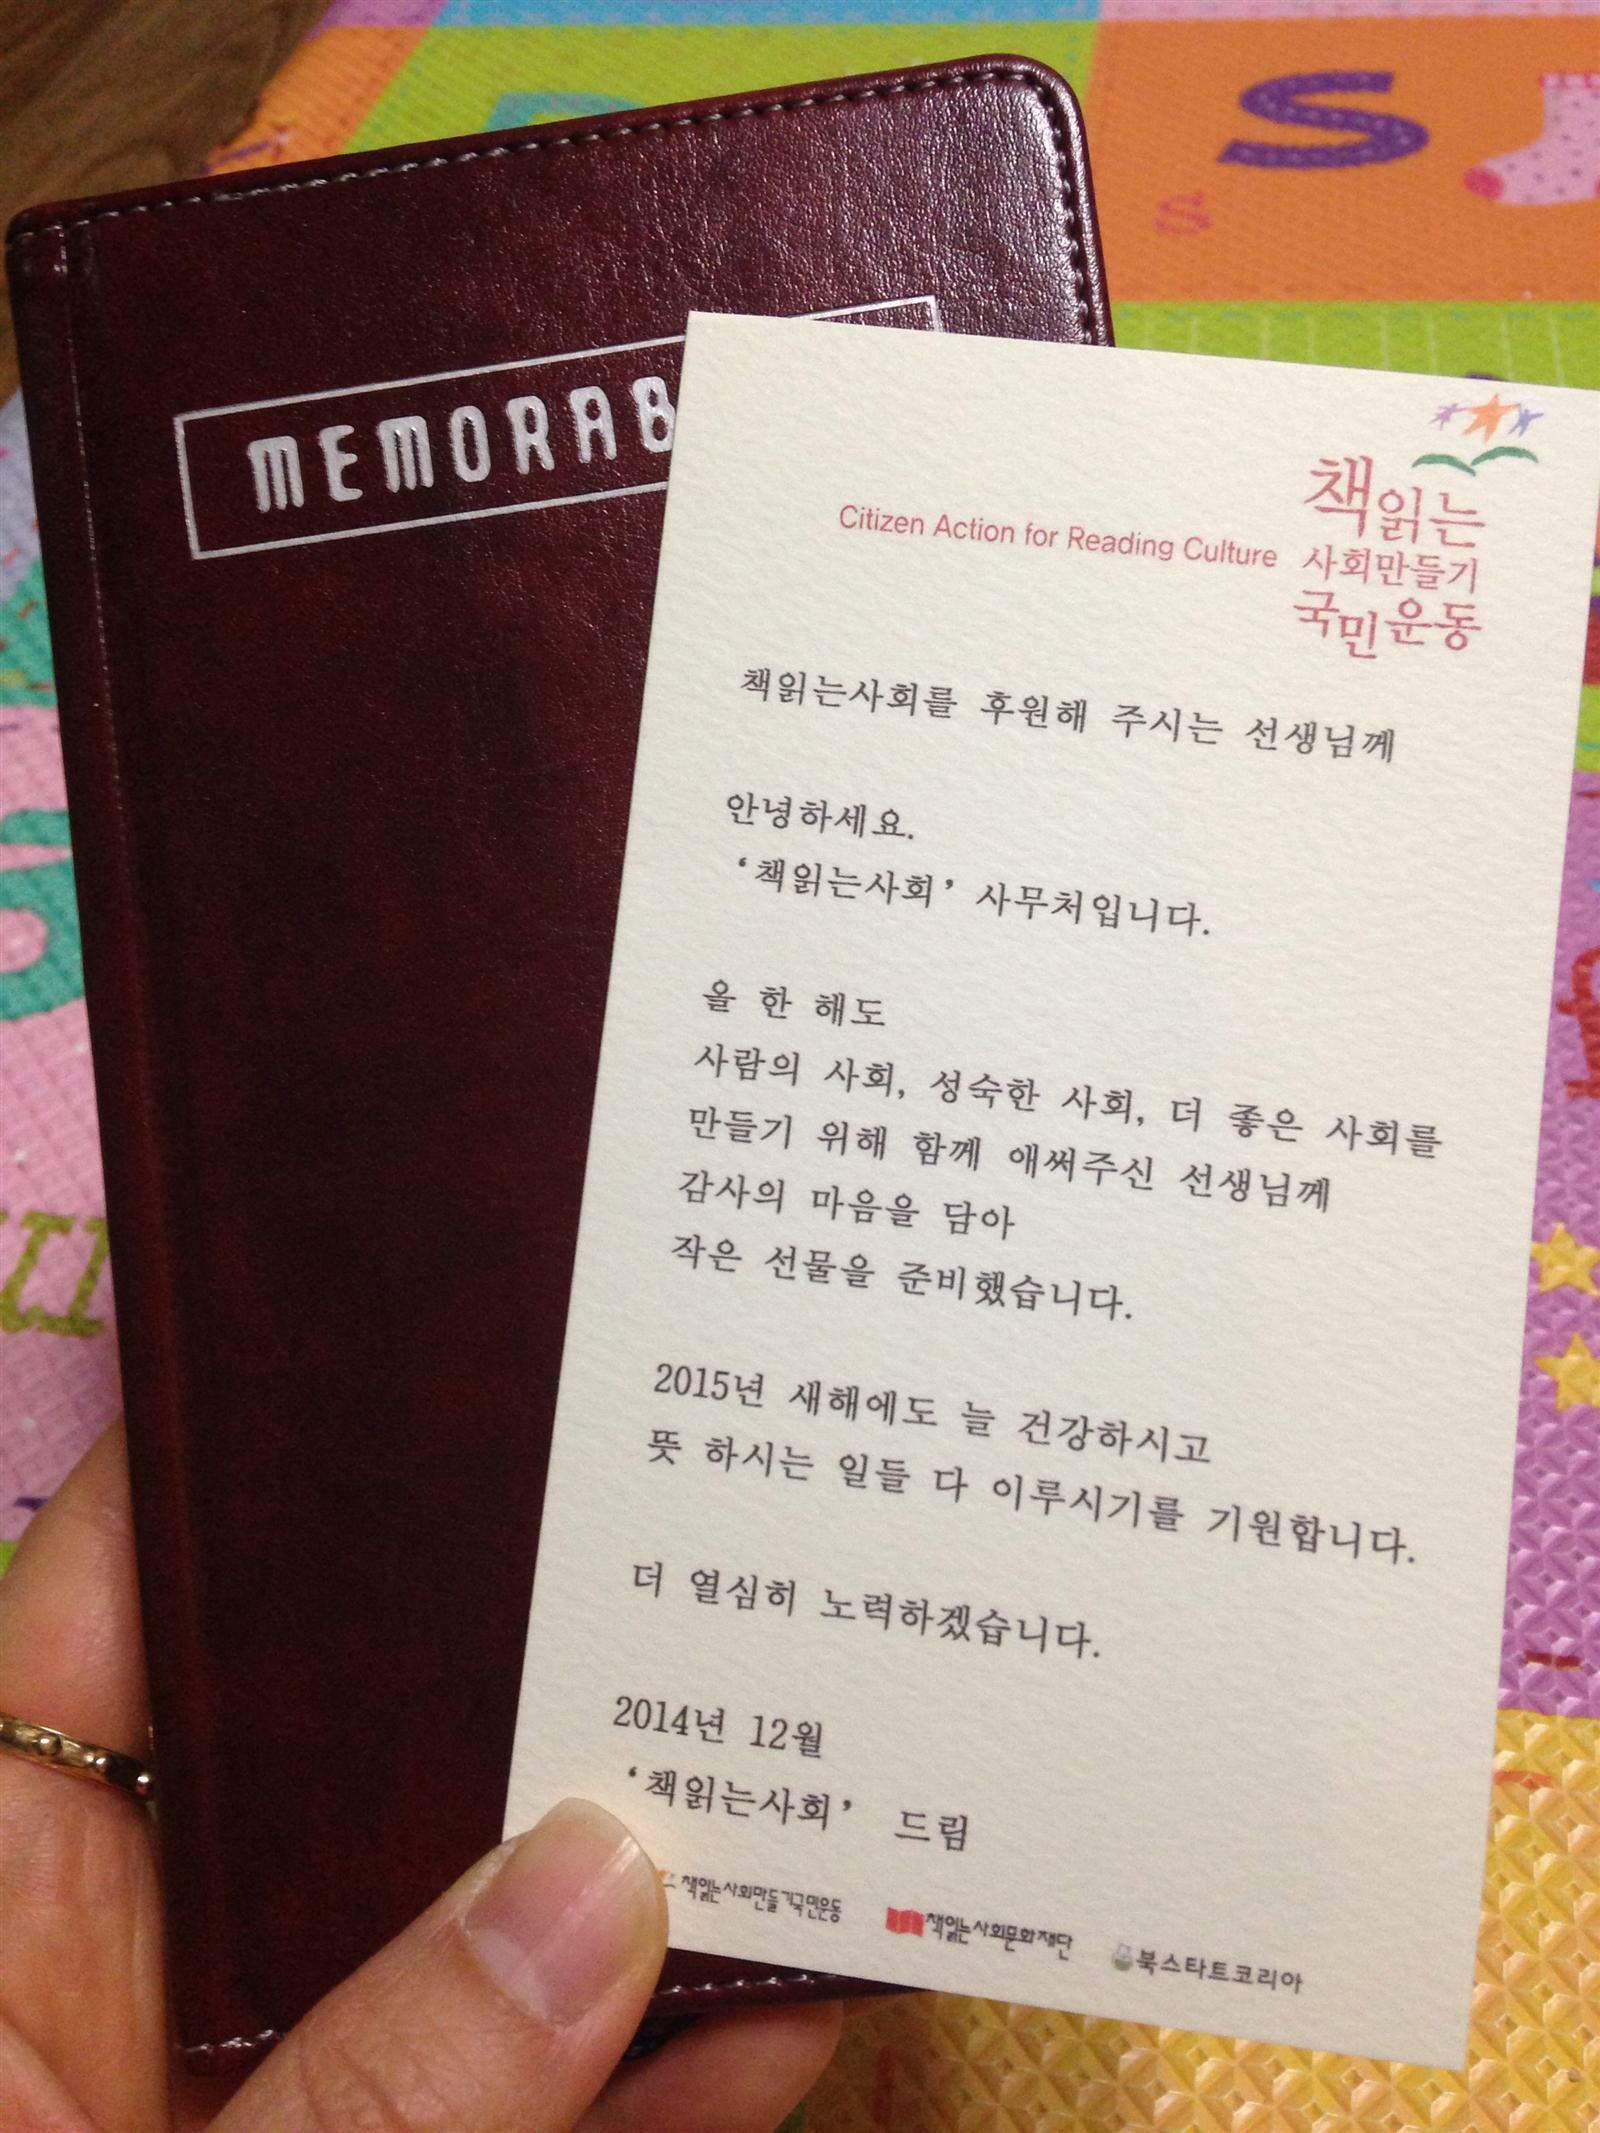 MEMORAB
S
s
Citizen Action for Reading Culture
책읽는
사회만들기
국민운동
책읽는사회를 후원해 주시는 선생님께
안녕하세요.
‘책읽는사회’ 사무처입니다.
올 한 해도
사람의 사회, 성숙한 사회, 더 좋은 사회를
만들기 위해 함께 애써주신 선생님께
감사의 마음을 담아
작은 선물을 준비했습니다.
2015년 새해에도 늘 건강하시고
뜻 하시는 일들 다 이루시기를 기원합니다.
더 열심히 노력하겠습니다.
2014년 12월
‘책읽는사회’ 드림
책읽는사회만들기국민운동
책읽는사회문화재단
북스타트코리아